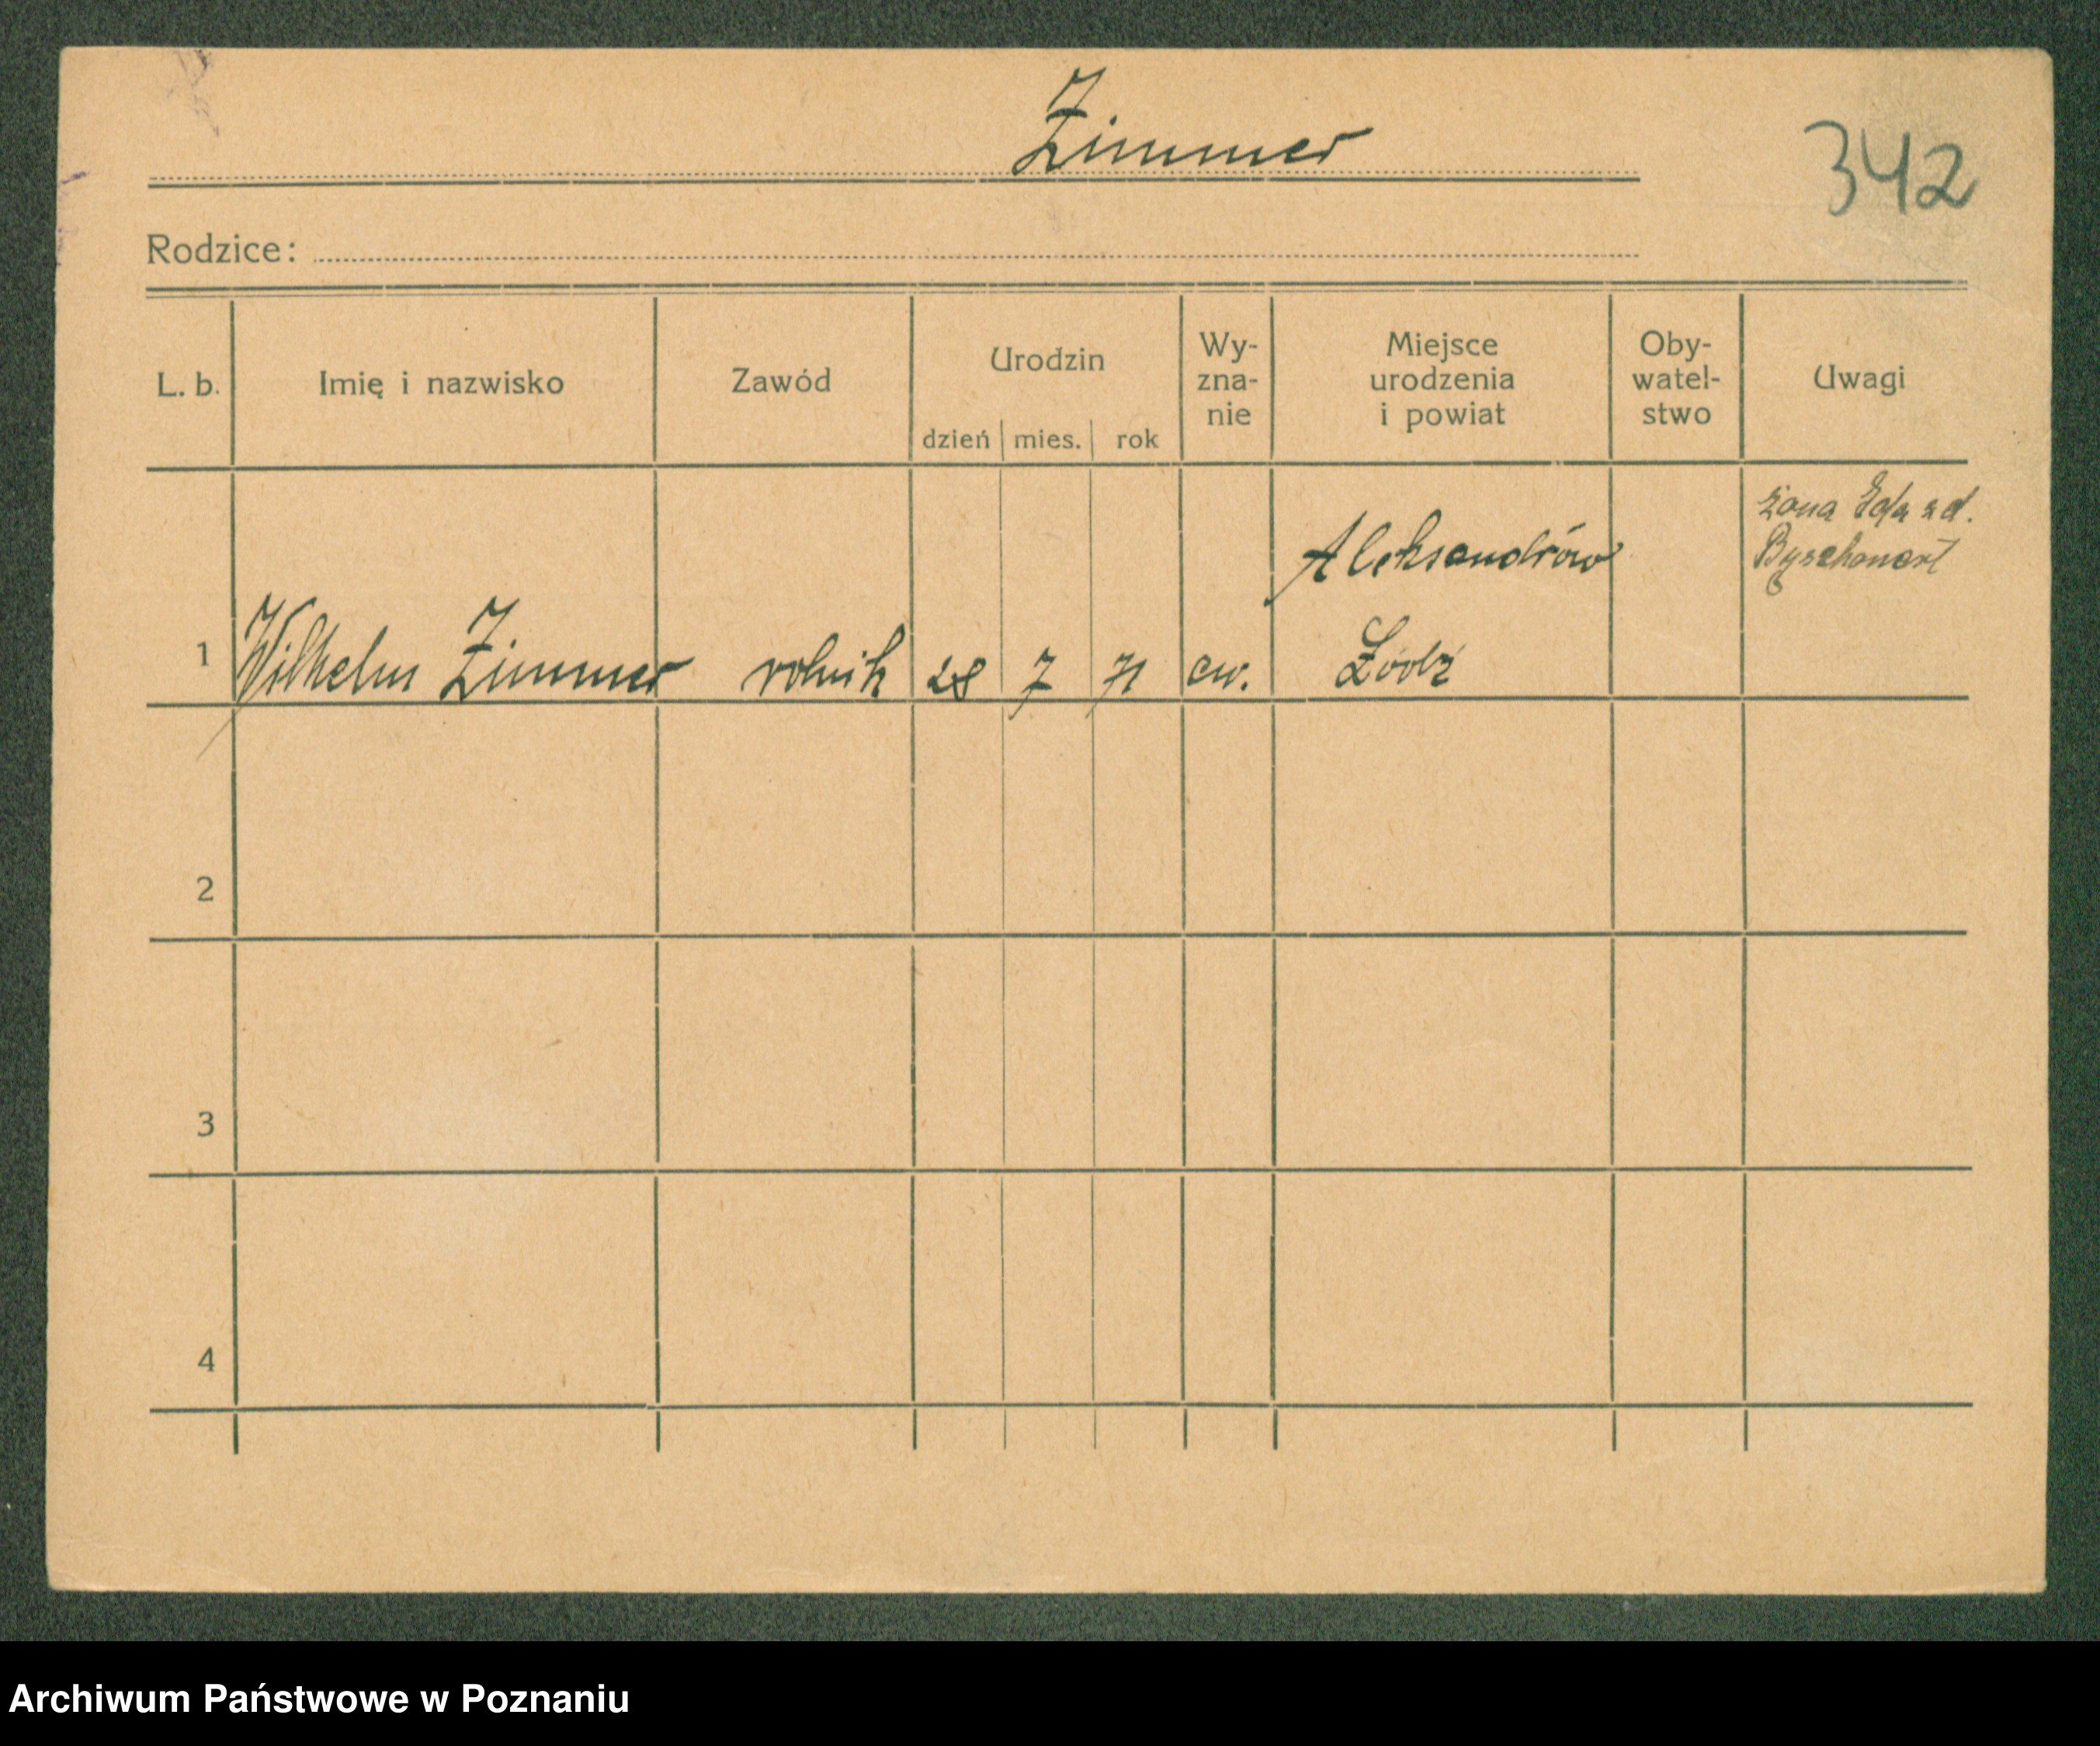 Zimmer
342
Rodzice:
L. b.
Imię i nazwisko
Zawód
Urodzin
dzień mies. rok
Wy-
zna-
nie
Miejsce
urodzenia
i powiat
Oby-
watel-
stwo
Uwagi
1 Wilhelm Zimmer rolnik 28 7 71 ew.
Aleksandrów
Łódź
żona
2
3
4
Archiwum Państwowe w Poznaniu